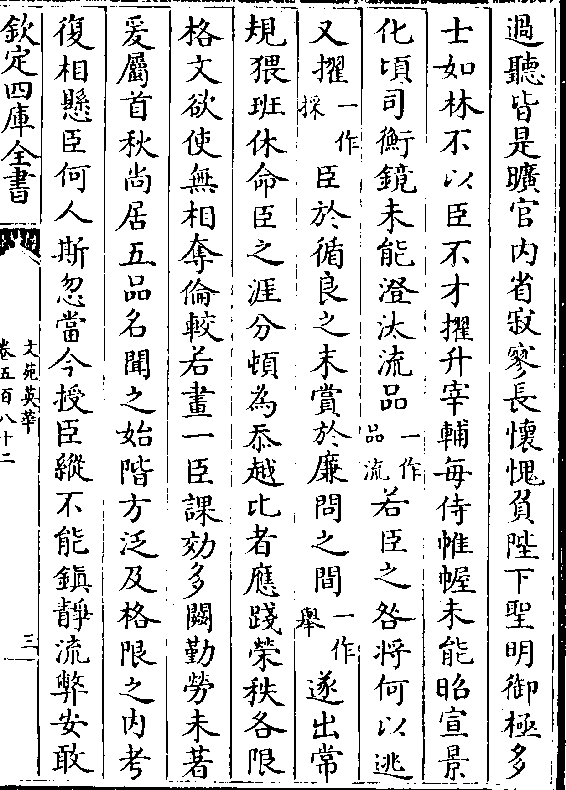 過聽皆是曠官内省寂寥長懷愧負陛下聖明御極多
士如林不以臣不才擢升宰輔每侍帷幄未能昭宣景
化頃司衡鏡未能澄汰流品一作品流若臣之咎將何以逃
又擢一作採臣於循良之末賞於廉問之間一作舉遂出常
規猥班休命臣之涯分頓為忝越比者應踐榮秩各限
格文欲使無相奪倫較若畫一臣課効多闕勤勞未著
爰屬首秋尚居五品名聞之始階方泛及格限之内考
復相懸臣何人斯忽當今授臣縱不能鎮靜流弊安敢
欽定四庫全書
文苑英華
卷五百八十二
三